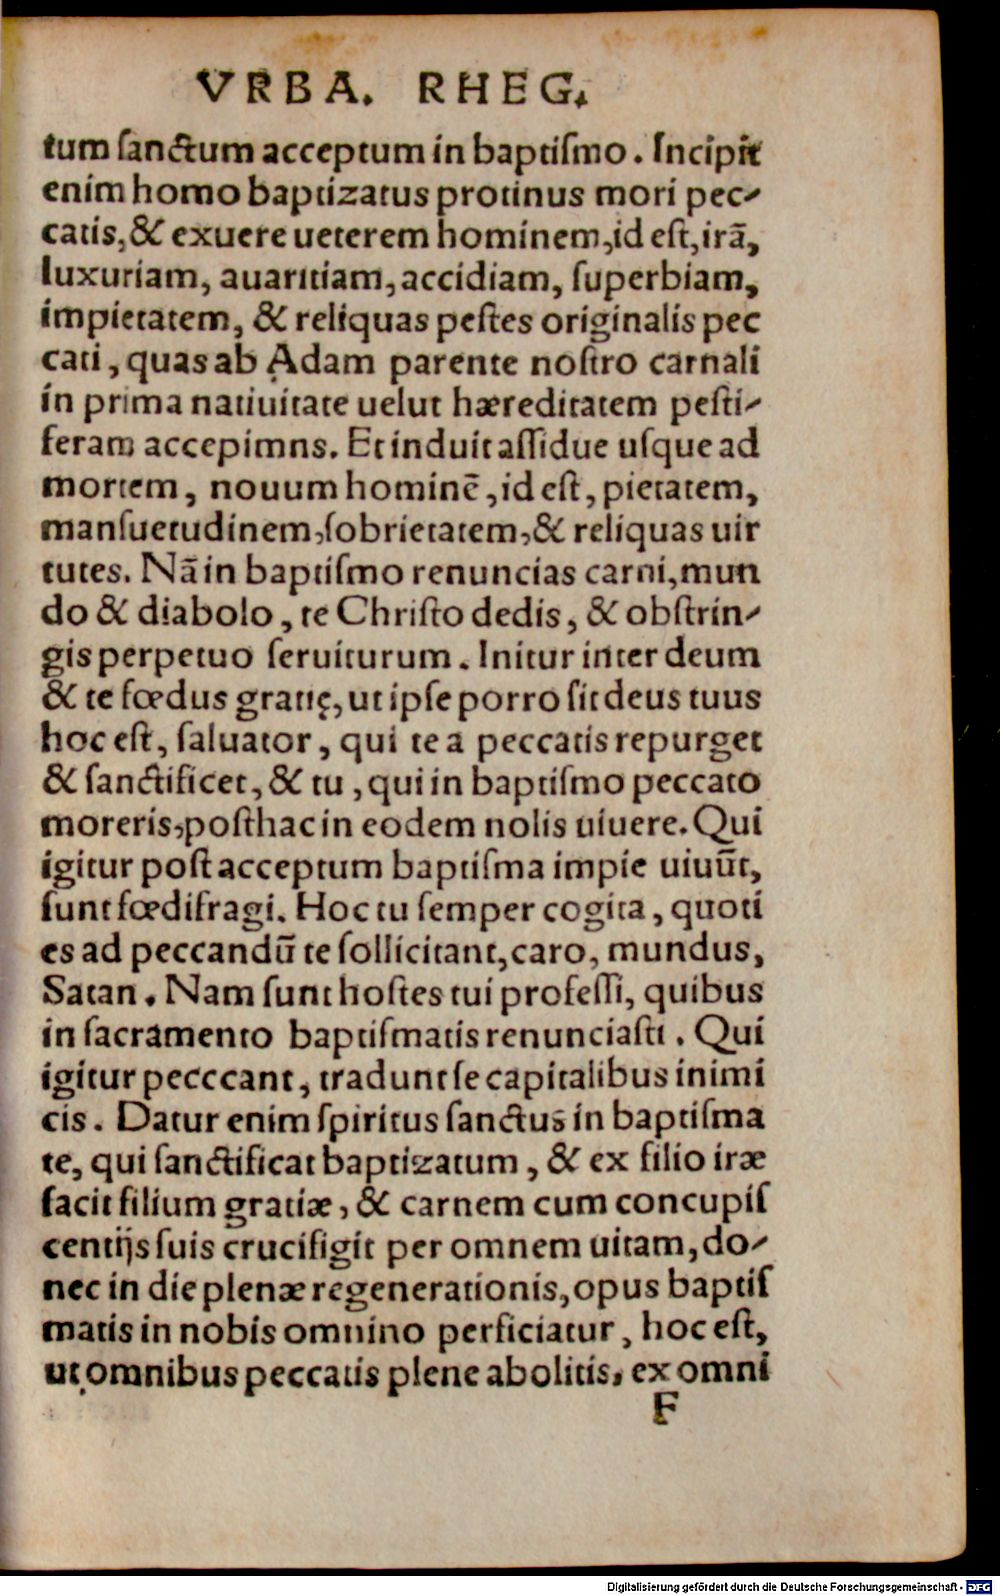 VRBA. RHEG.
tum ſanctum acceptum in baptiſmo. Incipit
enim homo baptizatus protinus mori pec-
catis, & exuere ueterem hominem, id eſt, irā,
luxuriam, auaritiam, accidiam, ſuperbiam,
impietatem, & reliquas peſtes originalis pec
cati, quas ab Adam parente noſtro carnali
in prima natiuitate uelut hæreditatem peſti-
feram accepimns. Et induit aſſidue uſque ad
mortem, nouum hominē, id eſt, pietatem,
manſuetudinem, ſobrietatem, & reliquas uir
tutes. Nā in baptiſmo renuncias carni, mun
do & diabolo, te Chriſto dedis, & obſtrin-
gis perpetuo ſeruiturum. Initur inter deum
& te fœdus gratię, ut ipſe porro ſit deus tuus
hoc eſt, ſaluator, qui te a peccatis repurget
& ſanctificet, & tu, qui in baptiſmo peccato
moreris, poſthac in eodem nolis uiuere. Qui
igitur poſt acceptum baptiſma impie uiuūt,
ſunt fœdifragi. Hoc tu ſemper cogita, quoti
es ad peccandū te ſollicitant, caro, mundus,
Satan. Nam ſunt hoſtes tui profeſſi, quibus
in ſacramento baptiſmatis renunciaſti. Qui
igitur pecccant, tradunt ſe capitalibus inimi
cis. Datur enim ſpiritus ſanctus in baptiſma
te, qui ſanctificat baptizatum, & ex filio iræ
facit filium gratiæ, & carnem cum concupiſ
centijs ſuis crucifigit per omnem uitam, do-
nec in die plenæ regenerationis, opus baptiſ
matis in nobis omnino perficiatur, hoc eſt,
ut omnibus peccatis plene abolitis, ex omni
F
Digitalisierung gefördert durch die Deutsche Forschungsgemeinschaft - DFG